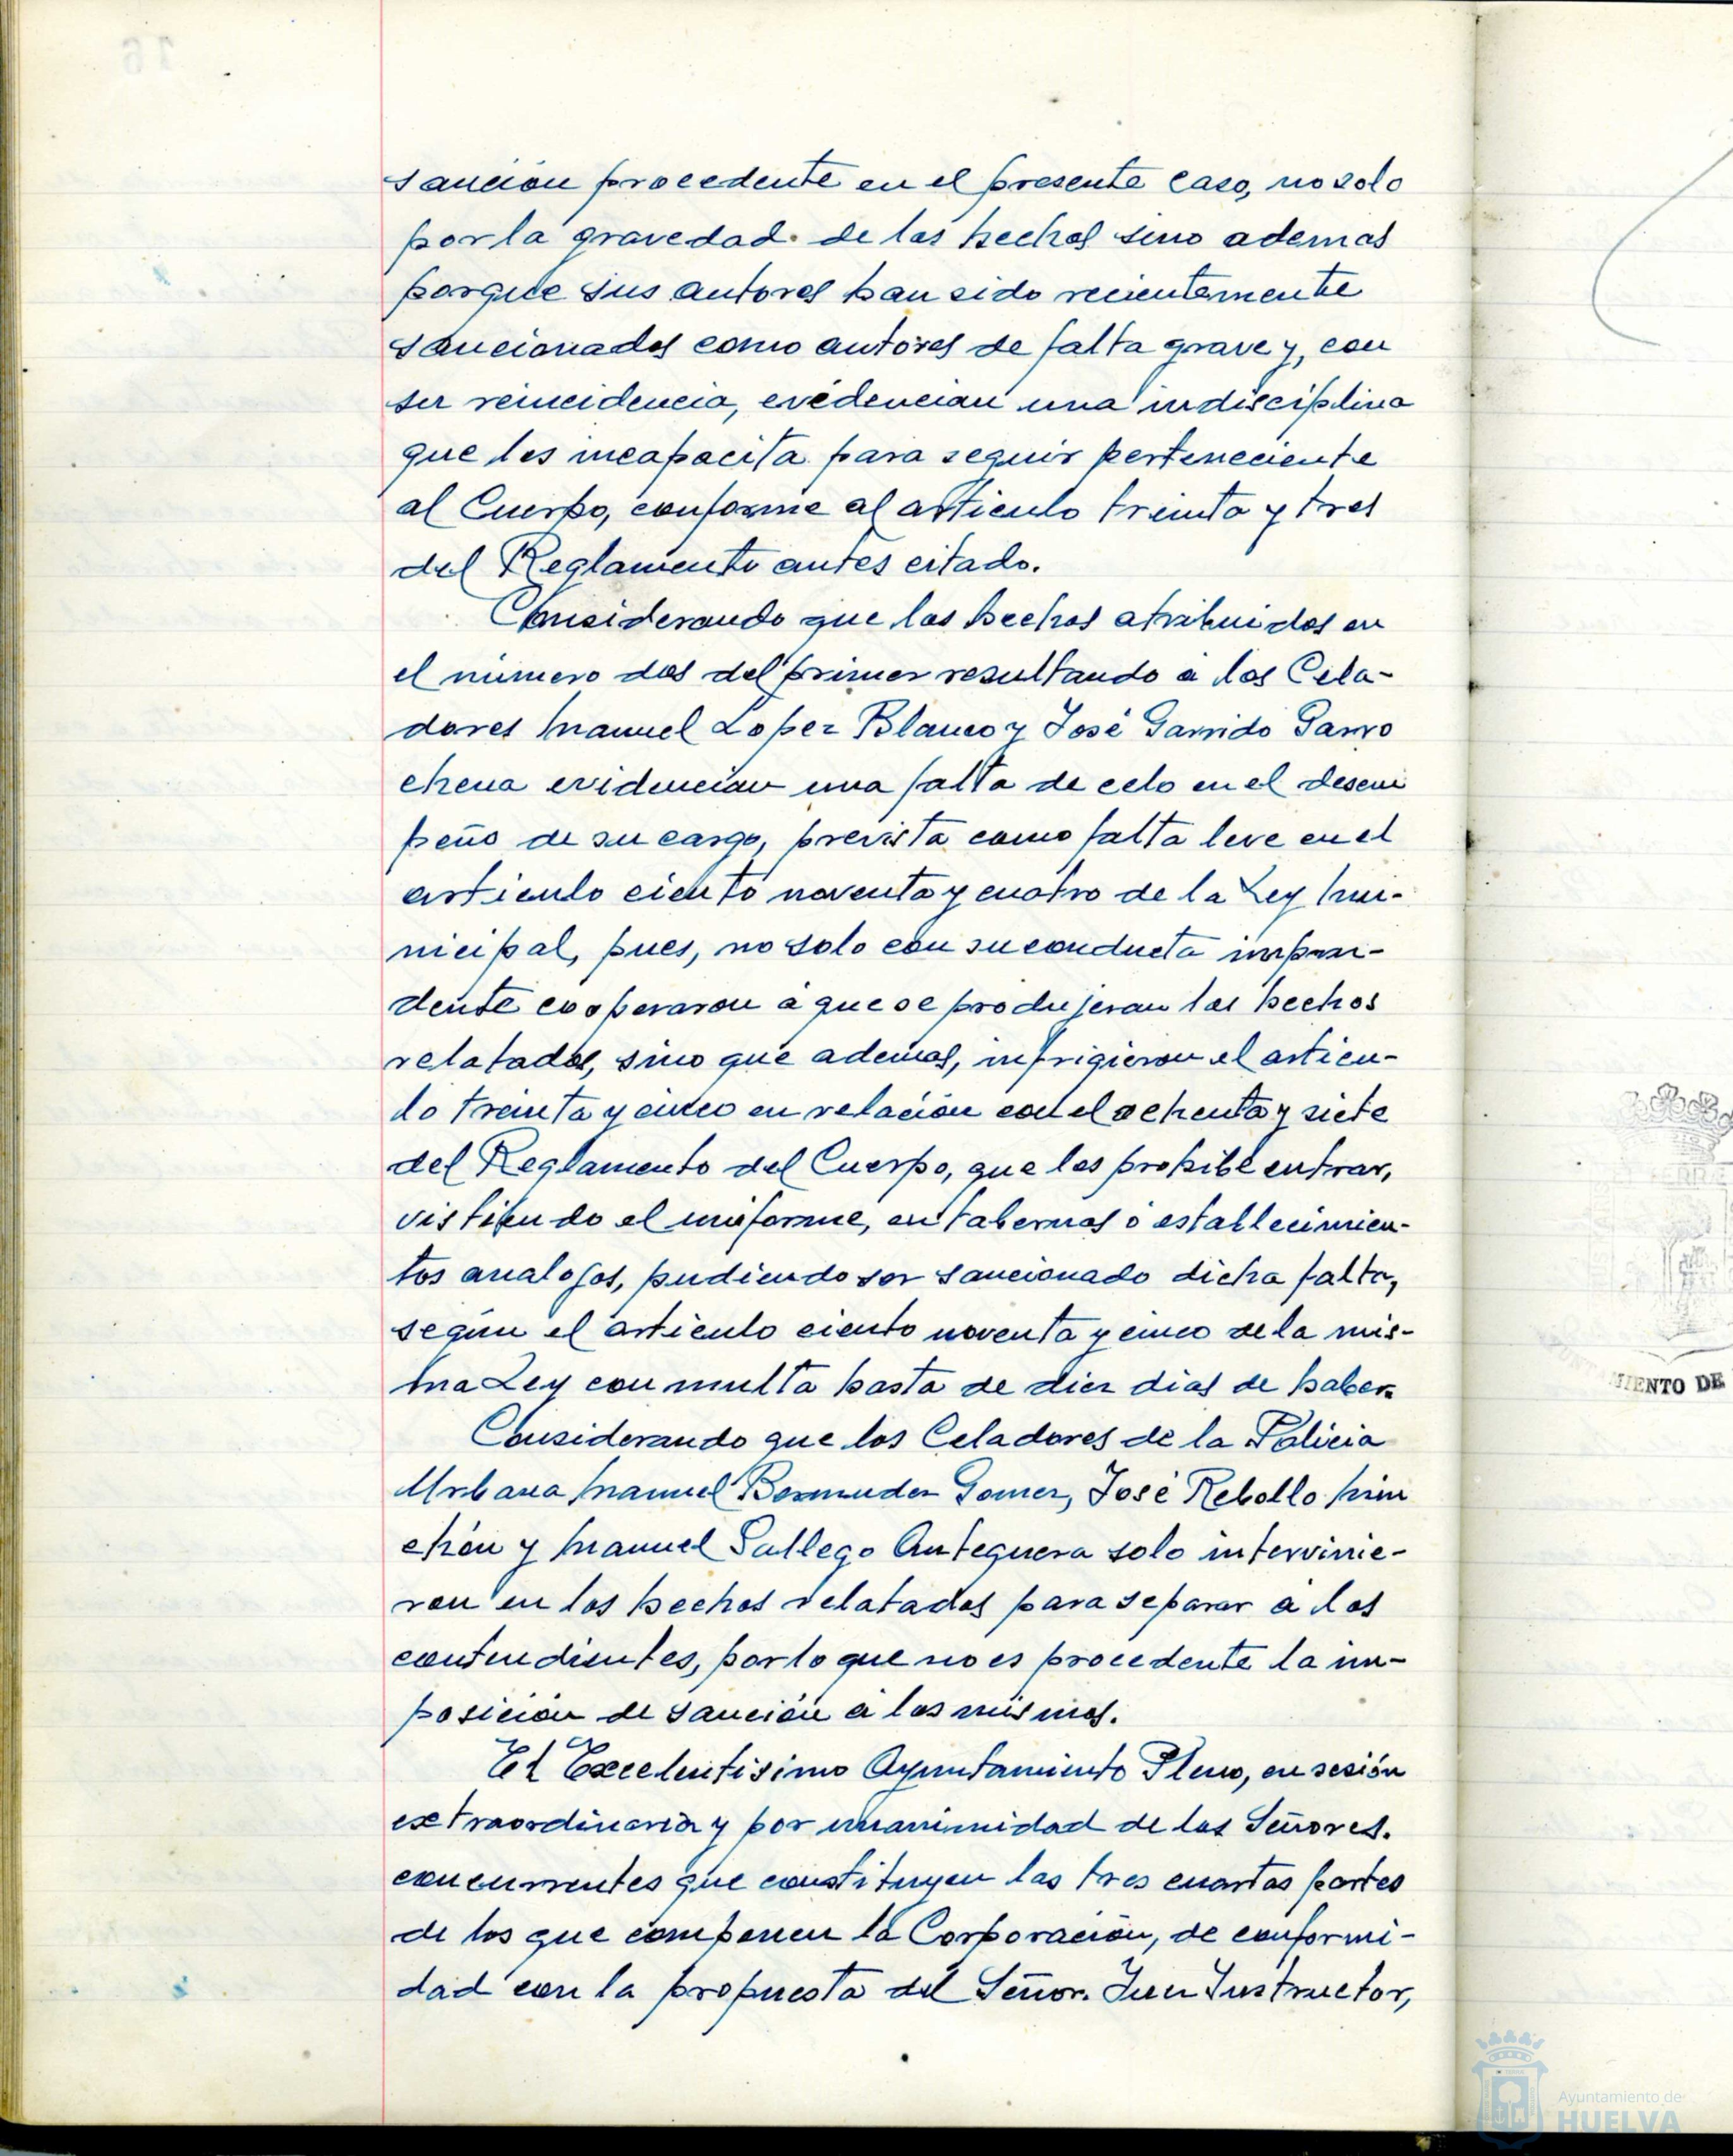 sanción procedente en el presente caso, no solo
por la gravedad de los hechos sino ademas
porque sus autores han sido recientemente
sancionados como autores de falta grave y, con
su reincidencia, evidencian una indisciplina
que les incapacita para seguir perteneciente
al Cuerpo, conforme al articulo treinta y tres
del Reglamento antes citado.
Considerando que los hechos atribuidos en
el número dos del primer resultando a los Cela-
dores Manuel Lopez Blanco y José Garrido Garro
chena evidencian una falta de celo en el desem
peño de su cargo, prevista como falta leve en el
articulo ciento noventa y cuatro de la Ley Mu-
nicipal, pues, no solo con su conducta impru-
dente cooperaron a que se produjeran los hechos
relatados, sino que ademas, infrigieron el articu-
lo treinta y cinco en relación con el ochenta y siete
del Reglamento del Cuerpo, que les prohibe entrar,
vistiendo el uniforme, en tabernas ó establecimien-
tos analogos, pudiendo ser sancionado dicha falta,
según el articulo ciento noventa y cinco de la mis-
ma Ley con multa hasta de diez dias de haber.
Considerando que los Celadores de la Policia
Urbana Manuel Bermudez Gomez, José Rebollo Min
chón y Manuel Gallego Antequera solo intervinie-
ron en los hechos relatados para separar a los
contendientes, por lo que no es procedente la im-
posición de sanción a los mismos.
El Excelentisimo Ayuntamiento Pleno, en sesión
extraordinaria y por unanimidad de los Señores.
concurrentes que constituyen las tres cuartas partes
de los que componen la Corporación, de conformi-
dad con la propuesta del Señor. Juez Instructor,
MIENTO DE
Ayuntamiento de
HUELVA